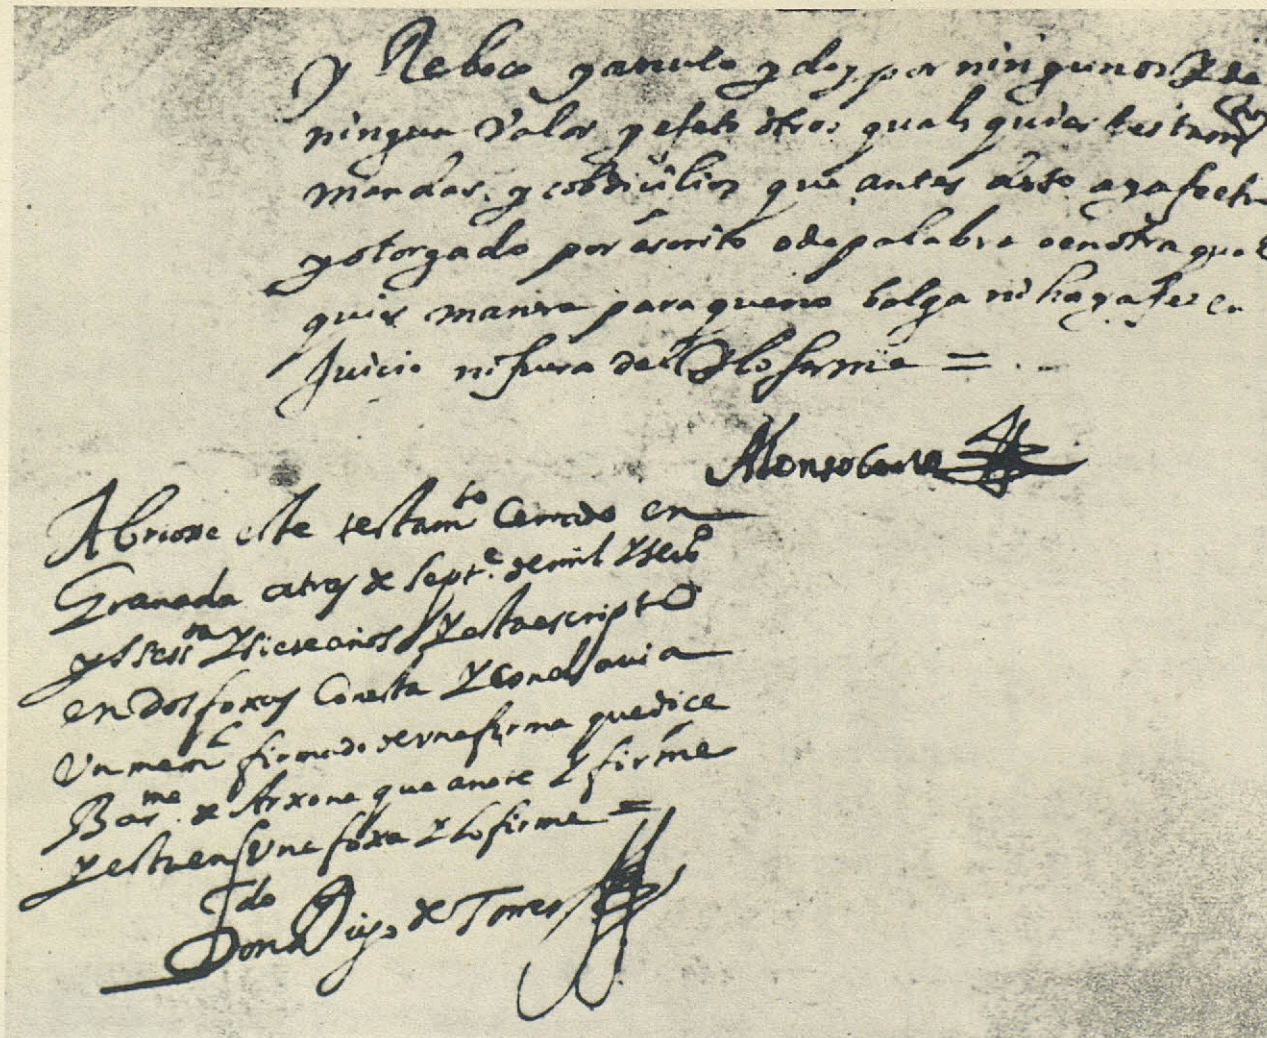 y Reboco y anulo y doy por ningunos y de
ningun valor y efeto otros quales quier testam
mandas y cobdiulios que antes desto aya fecho
y otorgado por escrito o de palabra o en otra qual
quier manera para que no balga ni haga fee en
Juicio ni fuera del y lo firme =
Alonso Cano
Abriose este testam^to Cerrado en
Granada a tres de Sept^e. de mil y seis^os
y sess^ta y siete años y esta escripto
en Dos foxas Con esta y con el avia
Un mem^l firmado de una firma que dice
Bar^me de Arxona que anote y firme
y esta en una foxa y lo firme =
Don Diego de Torres